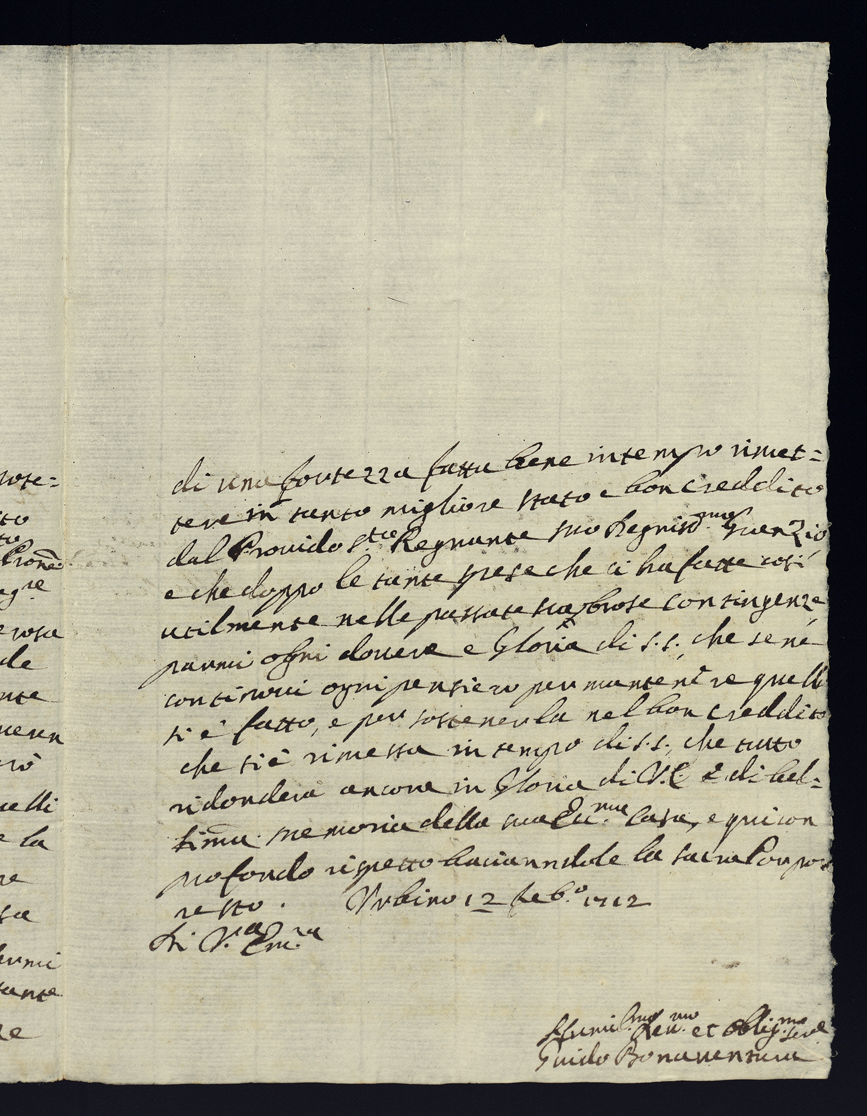 di una fortezza fatta bene in tempo rimet=
tere in tanto migliore stato e bon creddito
dal Provido S.to Regnante suo Benigniss.mo
e che doppo le tante spese che ci ha fatte così
utilmente nelle passate scabrose contingenze
parmi ogni dovere e Gloria di S.S. che se ne
continovi ogni pensiero per mantenere quello
si è fatto, e per sostenerla nel bon creddito
che si è rimessa in tempo di S.S. che tutto
ridonderà ancora in Gloria di V.E. e di bel=
lissima memoria della sua Em.ma Casa, e qui con
profondo rispetto baciandole la sacra Porpora
resto. Urbino 12 Feb.o 1712
Di V.ra Em.za
Humil.mo Dev.mo et Oblig.mo Serv.e
Guido Bonaventura
rose=
to
Prone
agre
erosa
de
nte
rò
uelli
e la
re
sa
armi
tante
re